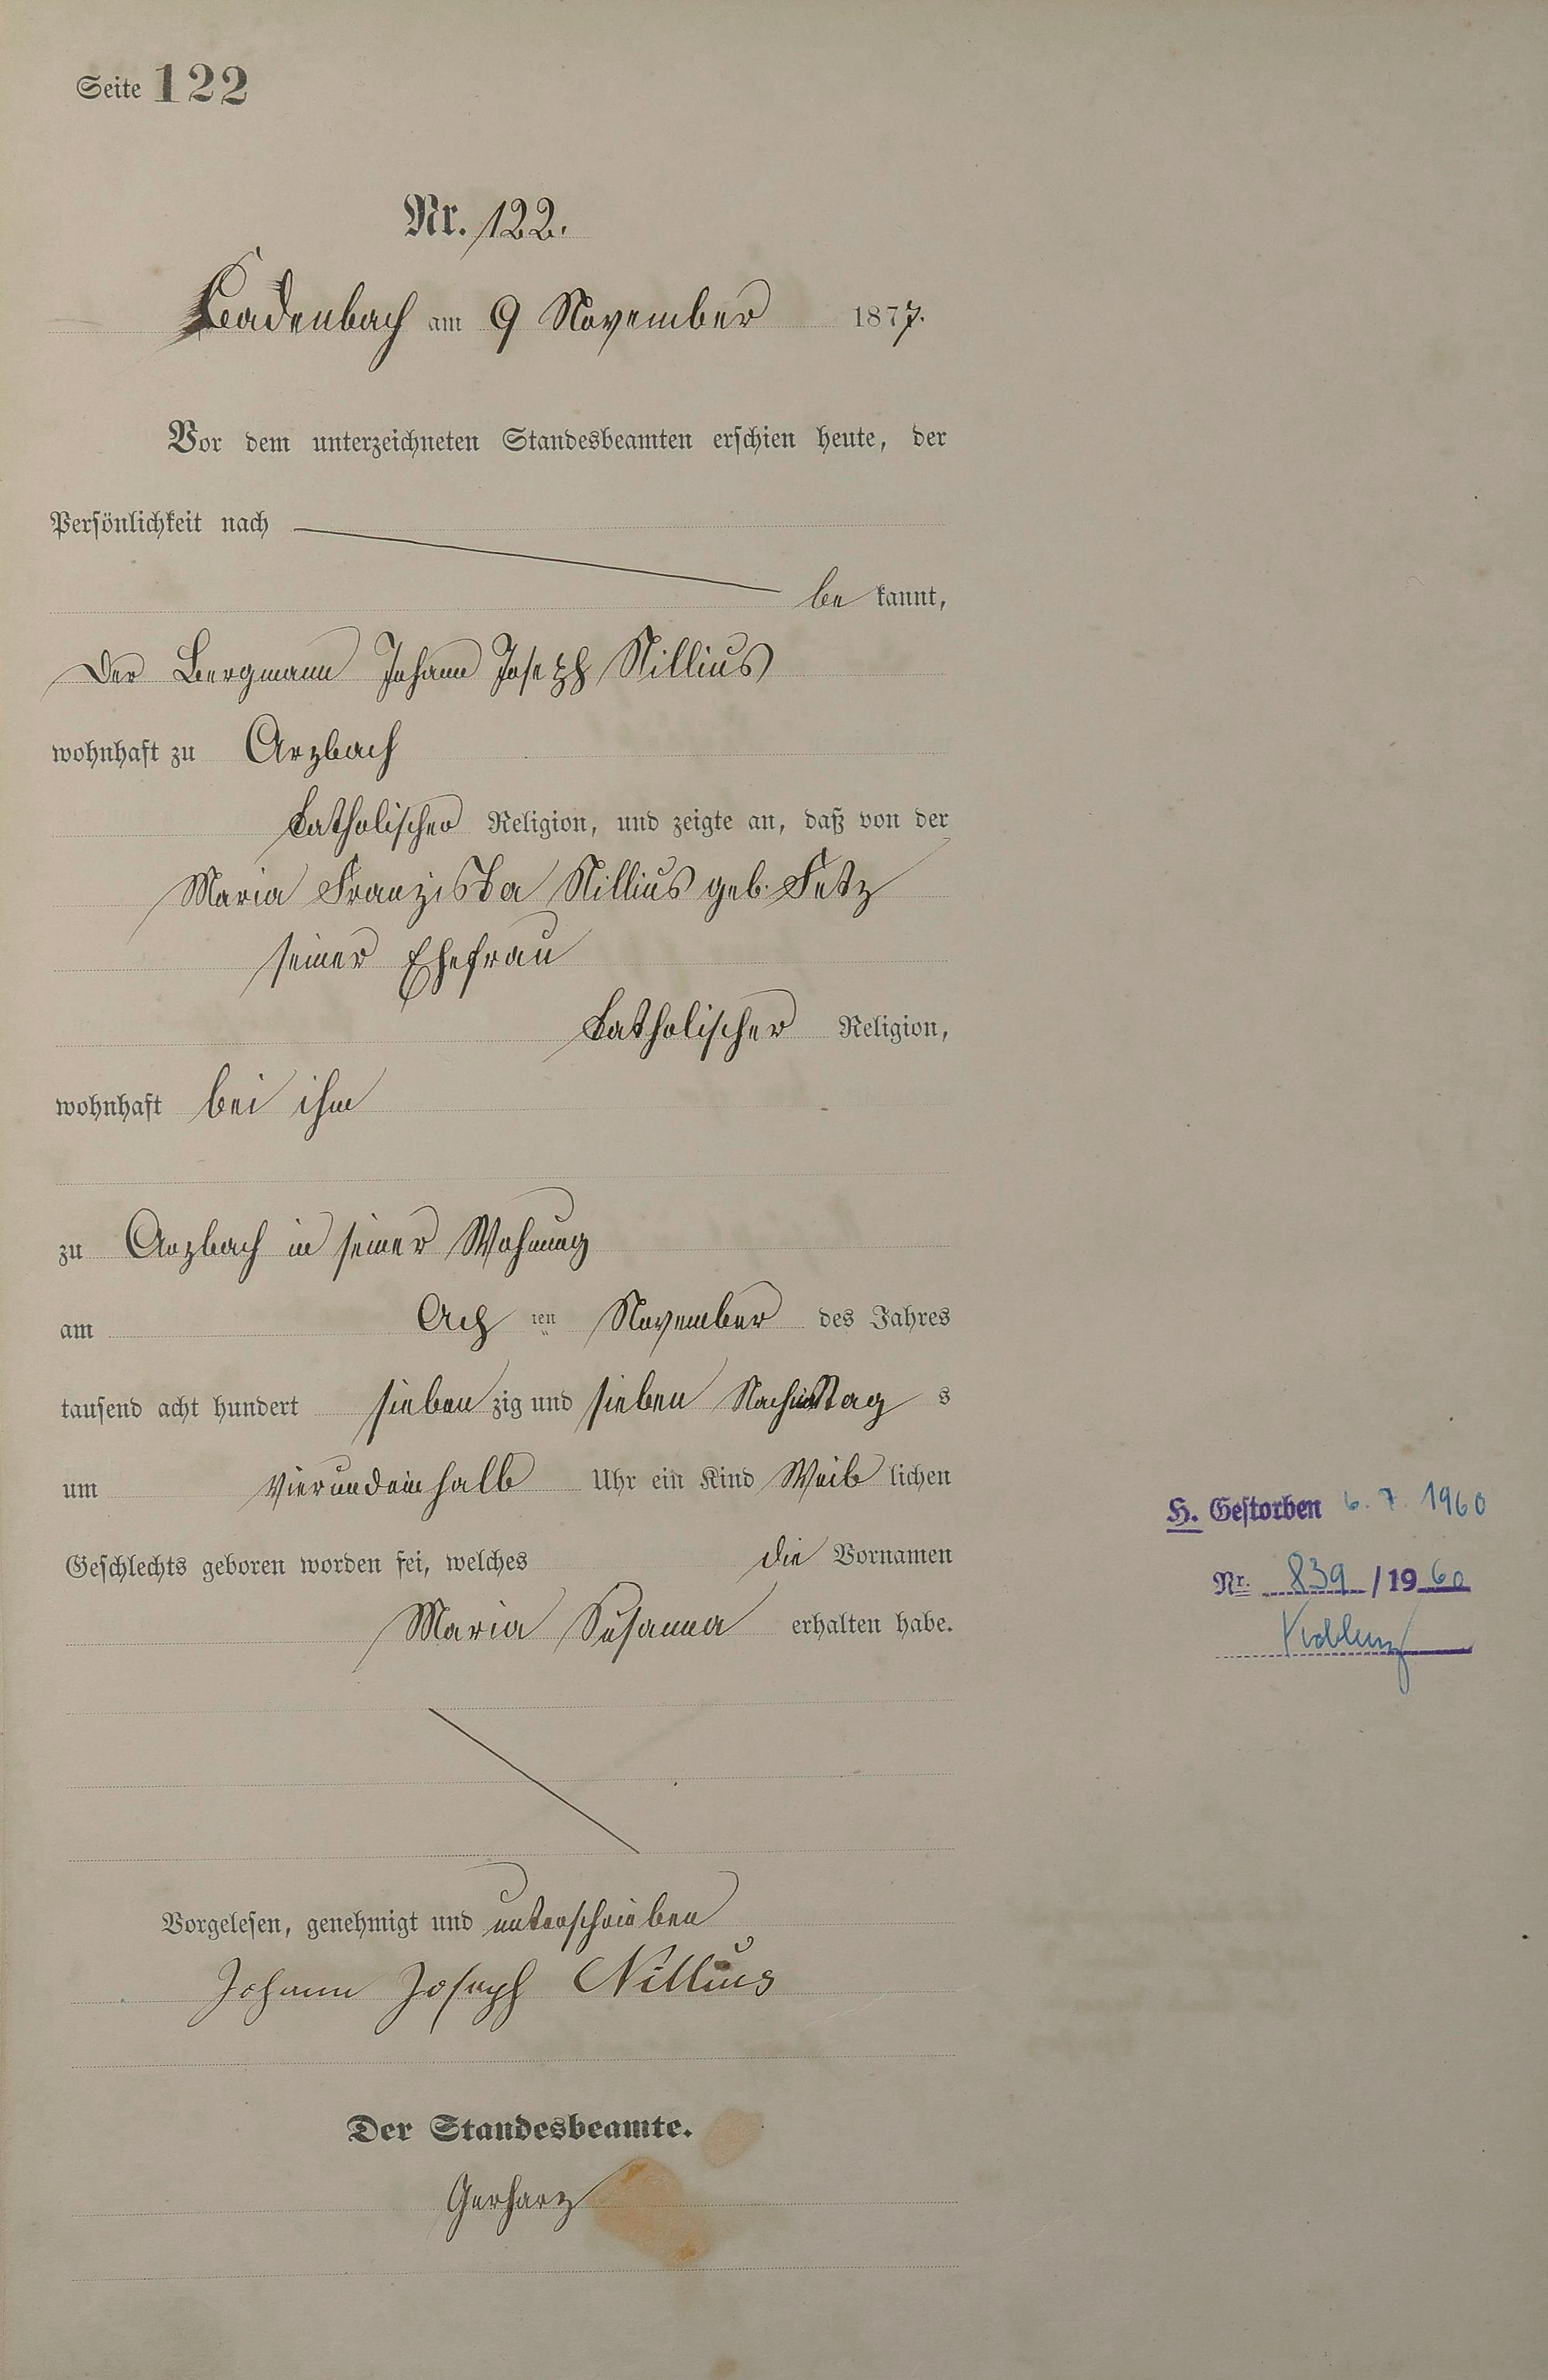 Seite 122
Nr. 122.
Kadenbach am 9 November 1877.
Vor dem unterzeichneten Standesbeamten erschien heute, der
Persönlichkeit nach
be kannt,
Der Bergmann Johann Joseph Nillius
wohnhaft zu Arzbach
katholischer Religion, und zeigte an, daß von der
Maria Franziska Nillius geb. Fetz
seiner Ehefrau
katholischer Religion,
wohnhaft bei ihm
zu Arzbach in seiner Wohnung
am Ach ten November des Jahres
tausend acht hundert sieben zig und sieben Nachmittag s
um Vierundeinhalb Uhr ein Kind Weib lichen
Geschlechts geboren worden sei, welches die Vornamen
Maria Susanna erhalten habe.
Vorgelesen, genehmigt und unterschrieben
Johann Joseph Nillius
Der Standesbeamte.
Gerharz
H. Gestorben 6. 7. 1960
Nr. 839 / 19 60
Koblenz